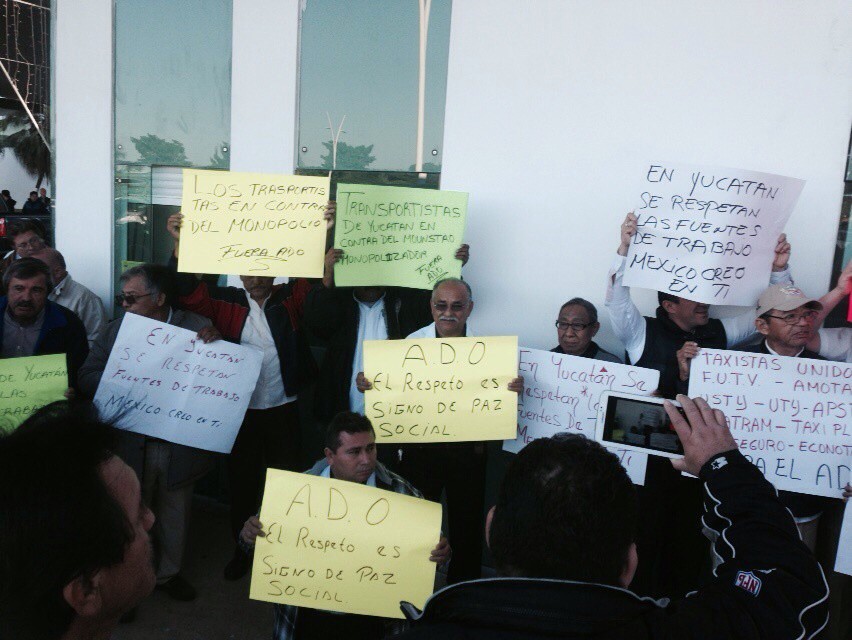 LOS TRASPORTIS
TAS EN CONTRA
DEL MONOPOLIO
FUERA ADO
TRANSPORTISTAS
DE YUCATAN EN
CONTRA DEL MOUNSTRO
MONOPOLIZADOR
FUERA
ADO
EN YUCATAN
SE RESPETAN
LAS FUENTES
DE TRABAJO
MEXICO CREO EN TI
DE YUCATAN
LAS
EN YUCATAN
SE RESPETAN
FUENTES DE TRABAJO
MEXICO CREO EN TI
ADO
El Respeto es
SIGNO DE PAZ
SOCIAL.
En YUCATÁN Se
Respetan
Fuentes De
TAXISTAS UNIDO
F.U.T.V. - AMOTA
USTY - UTY - APS
ATRAM - TAXI PL
SEGURO - ECONO
EL AD
A.D.O
El Respeto es
SIGNO DE PAZ
SOCIAL
NFL